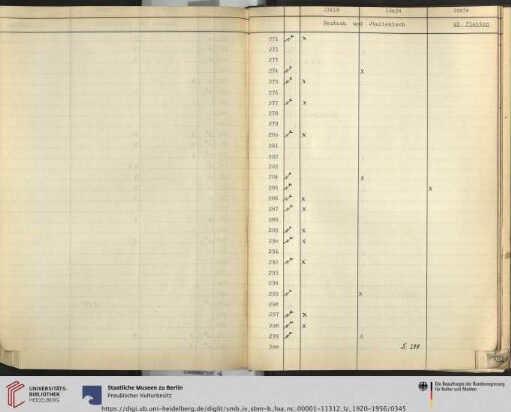 Deutsch und Italienisch
271 x
272
273
274 x
275 x
276
277 x
278
279
280 x
281
282
283
284 x
285 x
286 x
287 x
288 x
290 x
291
292 x
293
294
295 x
296
297 x
298 x
299 x
300
UNIVERSITÄTS-
BIBLIOTHEK
HEIDELBERG
Staatliche Museen zu Berlin
Preußischer Kulturbesitz
Die Beauftragte der Bundesregierung
für Kultur und Medien
https://digi.ub.uni-heidelberg.de/diglit/smb_iv_sbm-b_foa_nc_00001-11312_lz_1920-1956/0345